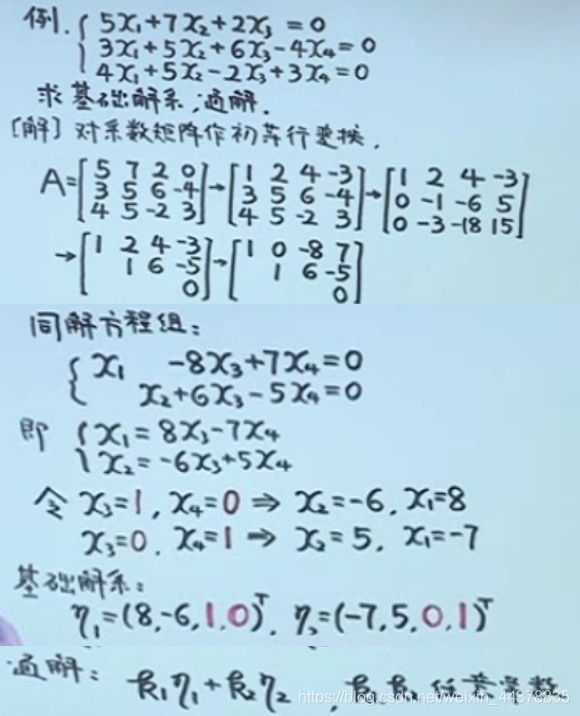 例. { 5x₁+7x₂+2x₃ = 0
3x₁+5x₂+6x₃-4x₄=0
4x₁+5x₂-2x₃+3x₄=0
求基础解系,通解.
[解] 对系数矩阵作初等行变换.
A=[5 7 2 0; 3 5 6 -4; 4 5 -2 3] → [1 2 4 -3; 3 5 6 -4; 4 5 -2 3] → [1 2 4 -3; 0 -1 -6 5; 0 -3 -18 15]
→ [1 2 4 -3; 1 6 -5; 0] → [1 0 -8 7; 1 6 -5; 0]
同解方程组:
{ x₁ -8x₃+7x₄=0
x₂+6x₃-5x₄=0
即 { x₁=8x₃-7x₄
x₂=-6x₃+5x₄
令 x₃=1, x₄=0 ⇒ x₂=-6, x₁=8
x₃=0. x₄=1 ⇒ x₂=5, x₁=-7
基础解系:
η₁=(8,-6,1,0)ᵀ, η₂=(-7,5,0,1)ᵀ
通解: k₁η₁+k₂η₂, k₁ k₂
https://blog.csdn.net/weixin_44378835